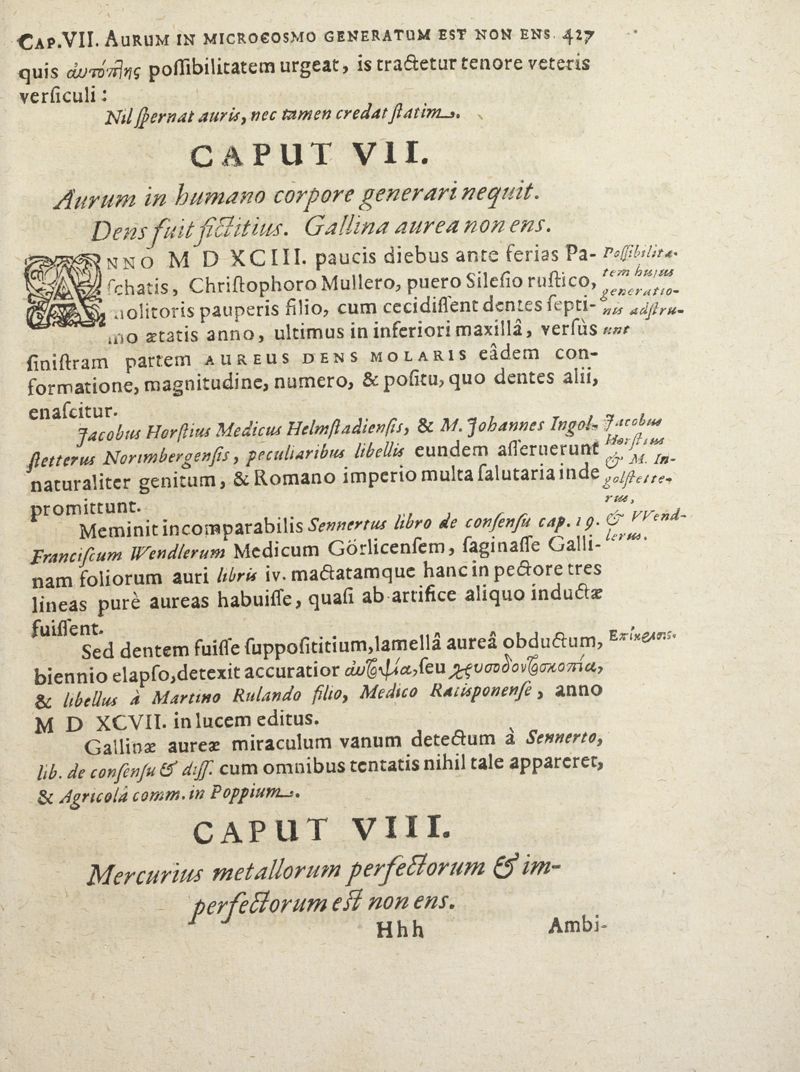 CAP.VII. AURUM IN MICROCOSMO GENERATUM EST NON ENS. 427
quis possibilitatem urgeat, is tractetur tenore veteris
versiculi:
Nil spernat auris, nec tamen credat statim.
CAPUT VII.
Aurum in humano corpore generari nequit.
Dens fuit fictitius. Gallina aurea non ens.
ANNO M D XCIII. paucis diebus ante ferias Pa-
schatis, Christophoro Mullero, puero Silesio rustico,
molitoris pauperis filio, cum cecidissent dentes septi-
mo ætatis anno, ultimus in inferiori maxillâ, versùs
sinistram partem AUREUS DENS MOLARIS eâdem con-
formatione, magnitudine, numero, & positu, quo dentes alii,
enascitur.
Possibilita-
tem hujus
generatio-
nis adstru-
unt
Jacobus Horstius Medicus Helmstadiensis, & M. Johannes Ingol-
stetterus Norimbergensis, peculiaribus libellis eundem asseruerunt
naturaliter genitum, & Romano imperio multa salutaria inde
promittunt.
Jacobus
Horstius
& M. In-
golstette-
rus,
& VVend-
lerus.
Meminit incomparabilis Sennertus libro de consensu cap. 19.
Franciscum Wendlerum Medicum Görlicensem, saginasse Galli-
nam foliorum auri libris iv. mactatamque hanc in pectore tres
lineas purè aureas habuisse, quasi ab artifice aliquo inductæ
fuissent.
Sed dentem fuisse supposititium, lamellâ aureâ obductum,
biennio elapso, detexit accuratior seu
& libellus à Martino Rulando filio, Medico Ratisponense, anno
M D XCVII. in lucem editus.
Gallinæ aureæ miraculum vanum detectum à Sennerto,
lib. de consensu & diss. cum omnibus tentatis nihil tale appareret,
& Agricolâ comm. in Poppium.
CAPUT VIII.
Mercurius metallorum perfectorum & im-
perfectorum est non ens.
Hhh Ambi-